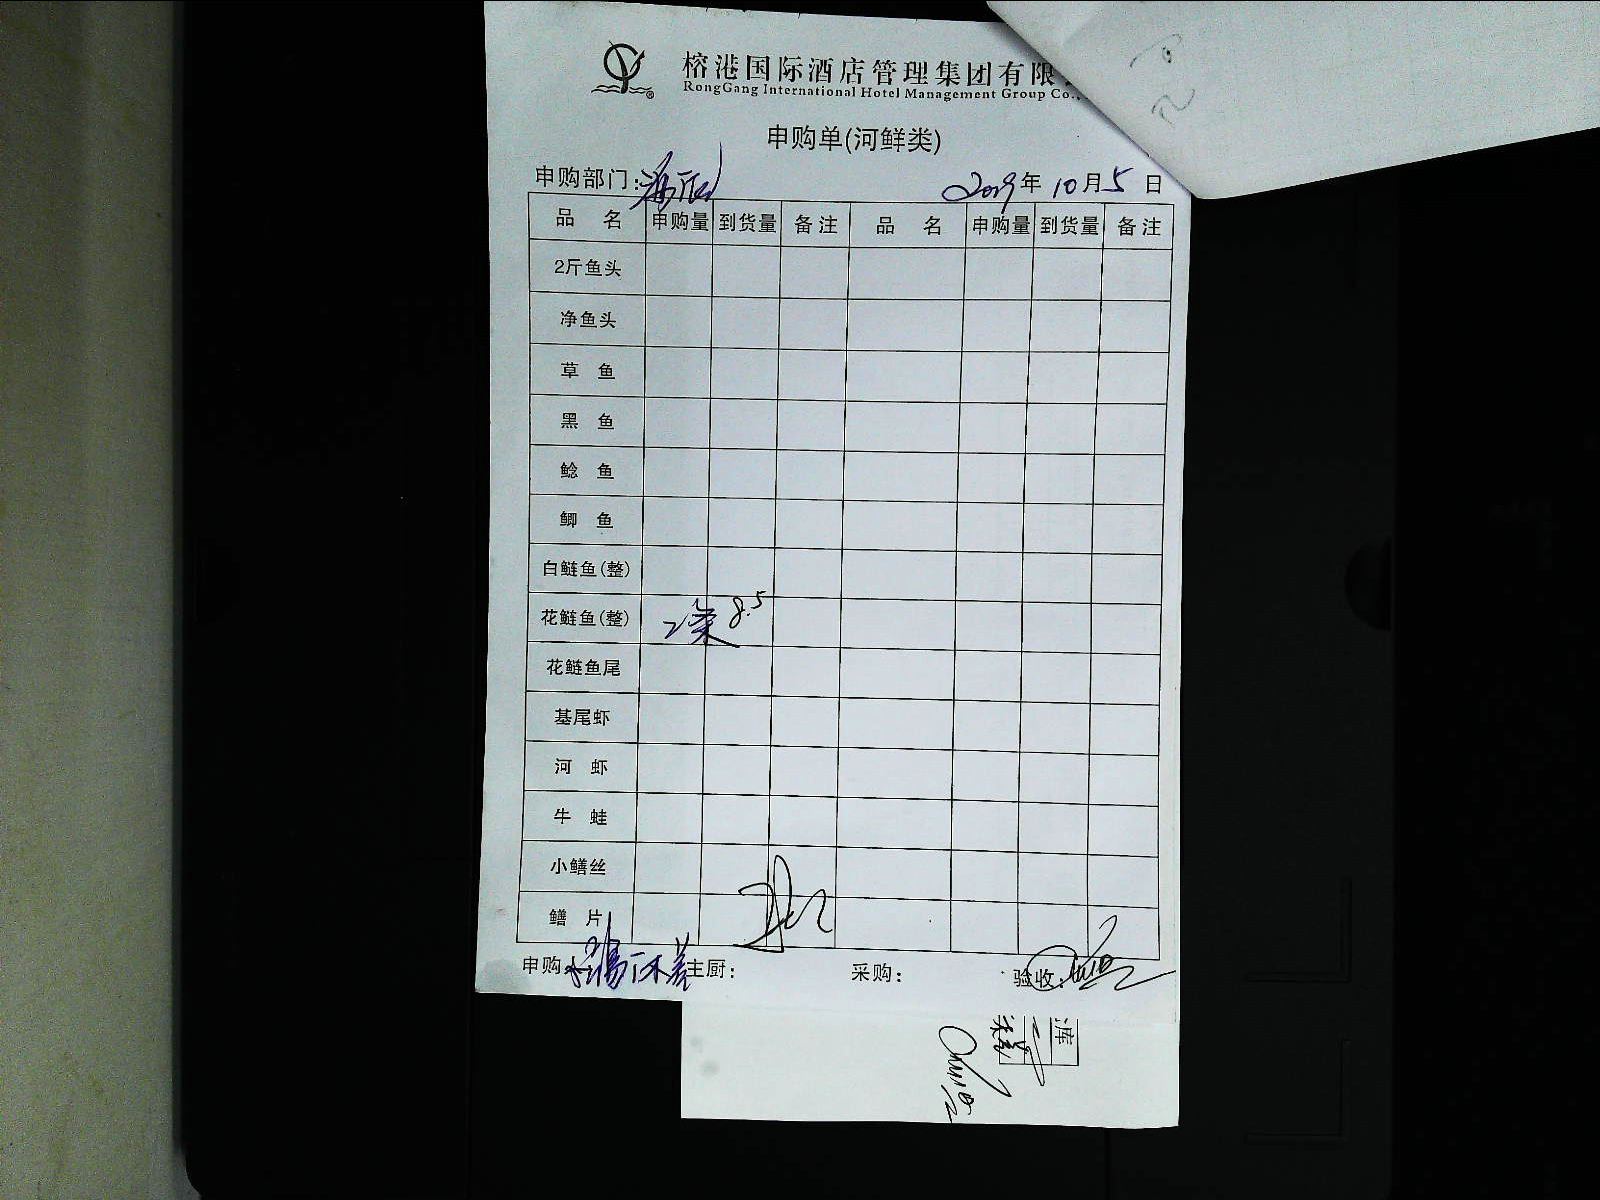 榕港国际酒店管理集团有限
RongGang International Hotel Management Group Co.,
申购单(河鲜类)
申购部门: 2019年10月5日
品名 申购量 到货量 备注 品名 申购量 到货量 备注
2斤鱼头
净鱼头
草鱼
黑鱼
鲶鱼
鲫鱼
白鲢鱼(整)
花鲢鱼(整) 2条 8.5
花鲢鱼尾
基尾虾
河虾
牛蛙
小鳝丝
鳝片
申购人 主厨: 采购: 验收:
库